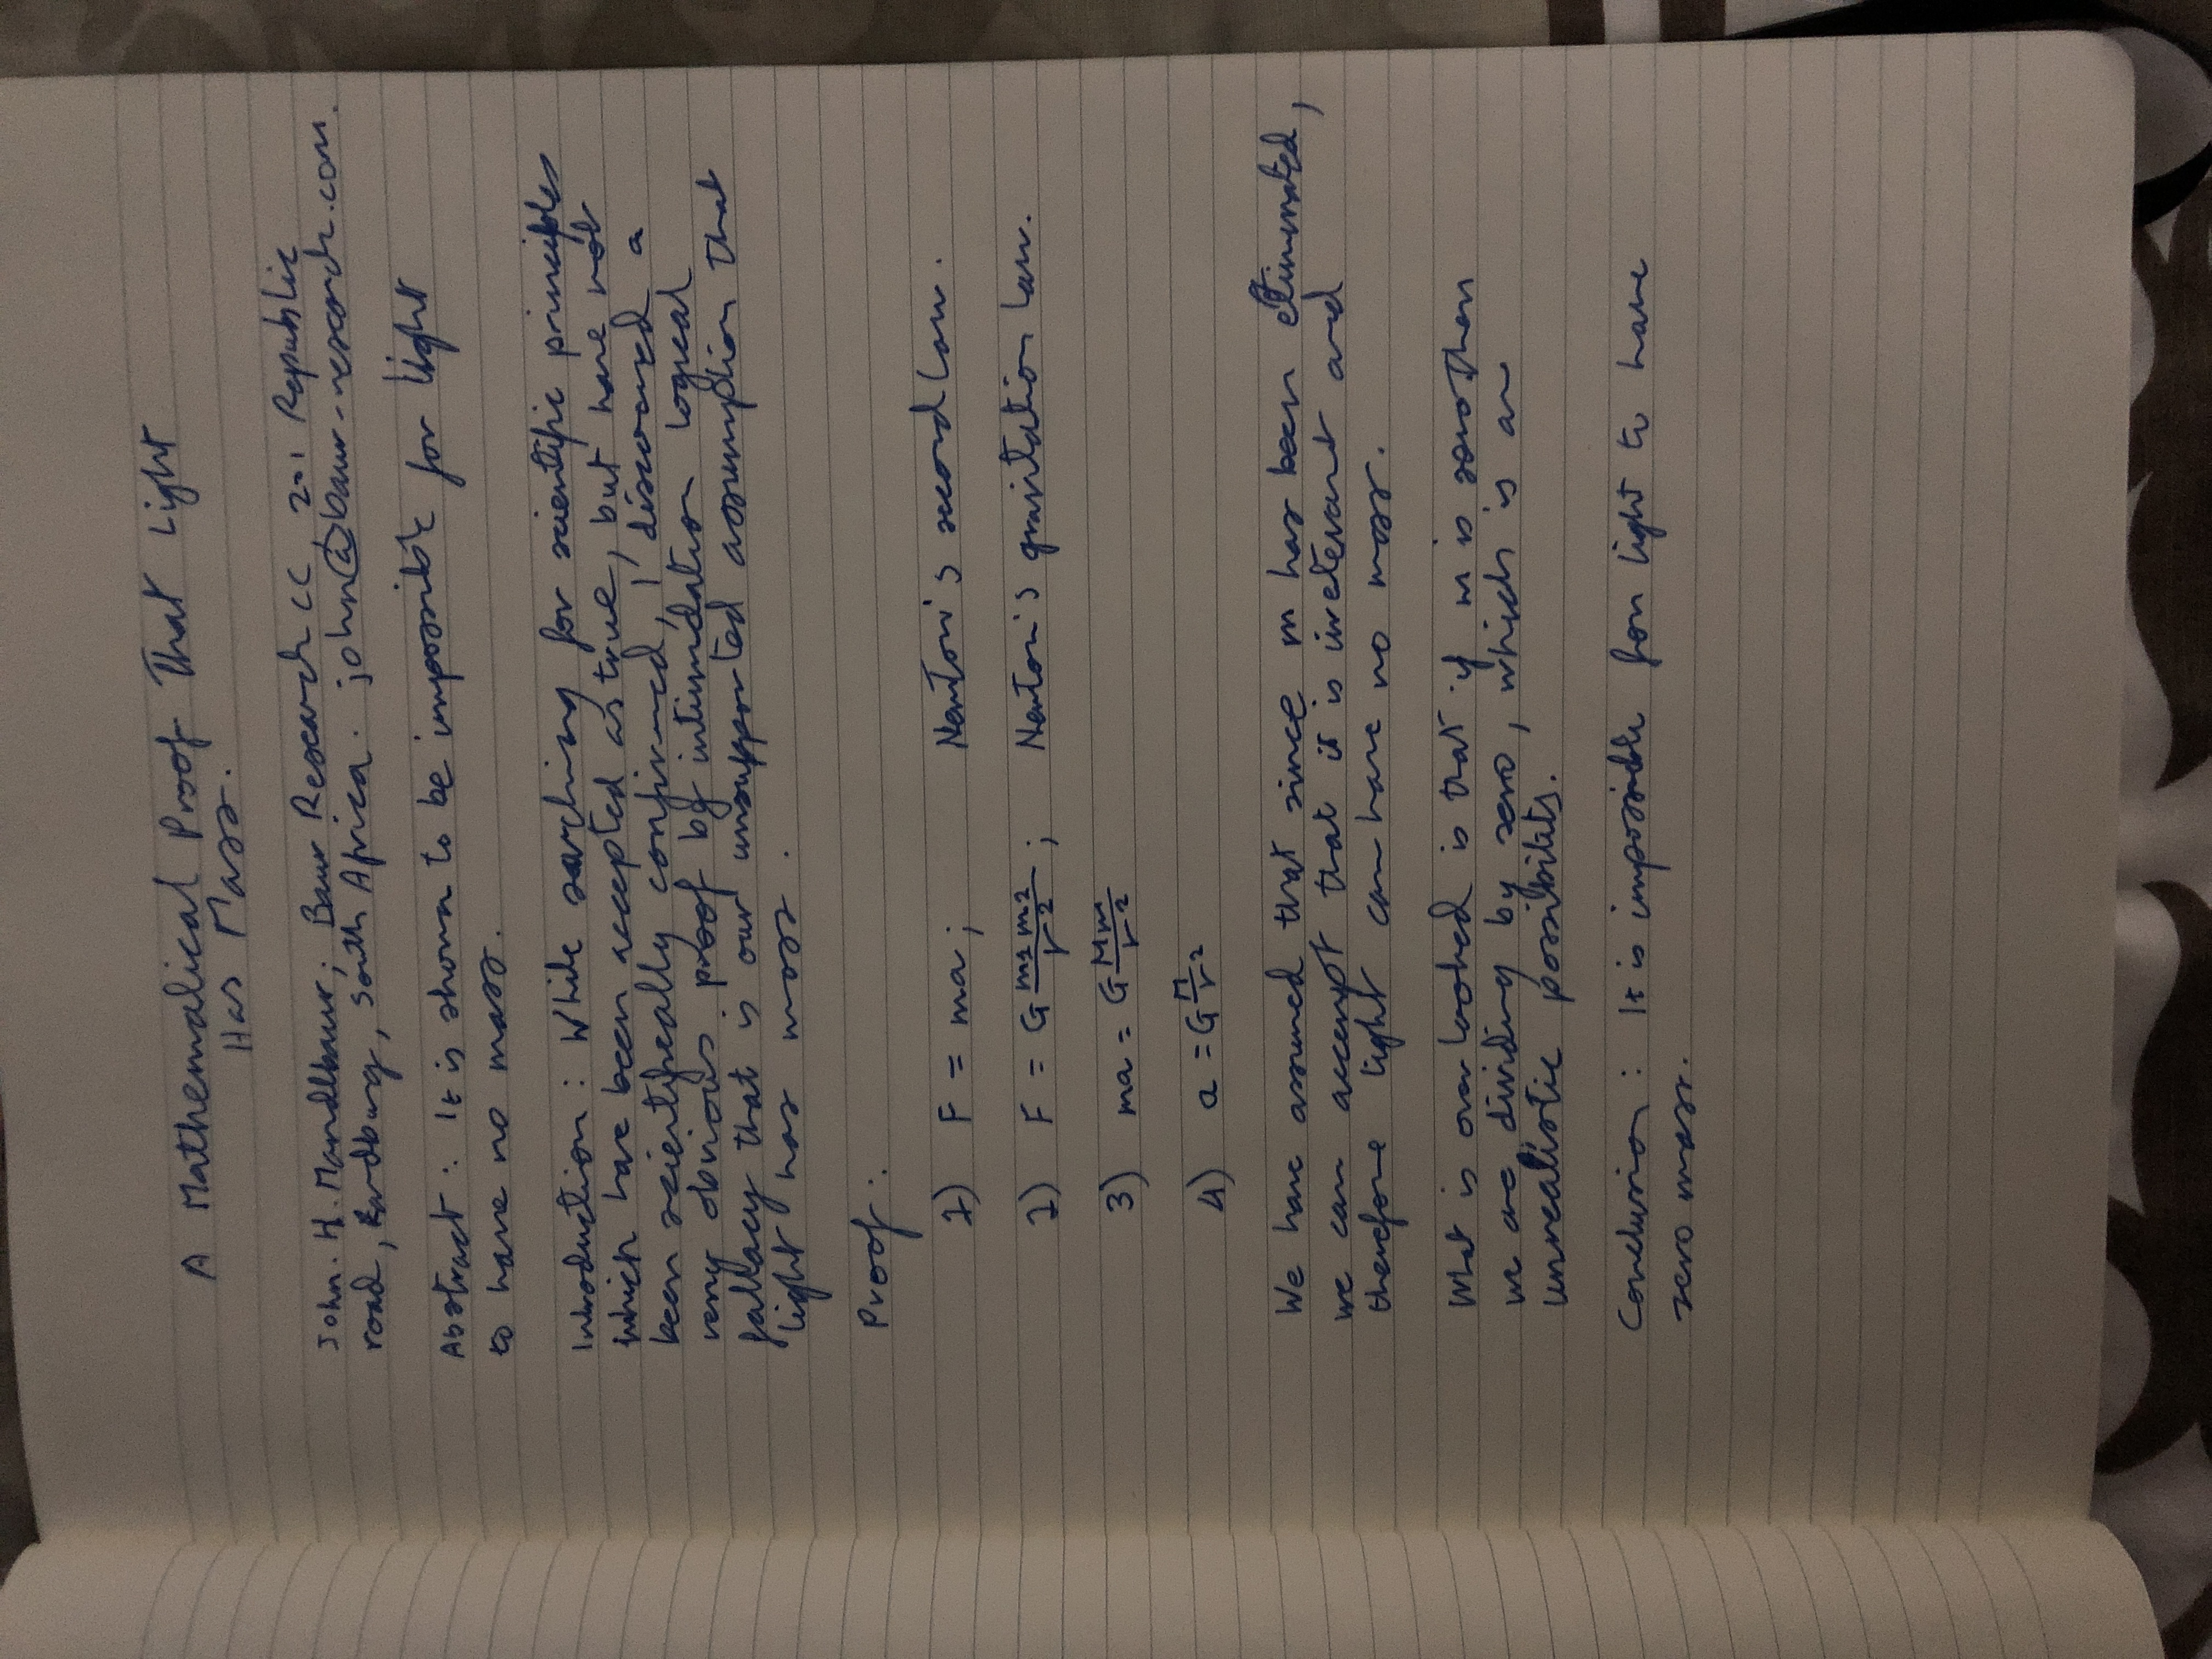 A Mathematical Proof That Light
Has Mass.
John. H. Mandlbaur; Baur Research CC 201 Republic
road, Randburg, South Africa. john@baur-research.com.
Abstract: It is shown to be impossible for light
to have no mass.
Introduction: While searching for scientific principles
which have been accepted as true, but have not
been scientifically confirmed, I discovered a
very obvious proof by intimidation logical
fallacy that is our unsupported assumption that
light has mass.
Proof:
1) F = ma; Newton's second law.
2) F = G m1 m2 / r2; Newton's gravitation law.
3) ma = G Mm / r2
4) a = G M / r2
We have assumed that since m has been eliminated,
we can accept that it is irrelevant and
therefore light can have no mass.
What is overlooked is that if m is zero then
we are dividing by zero, which is an
unrealistic possibility.
Conclusion: It is impossible for light to have
zero mass.